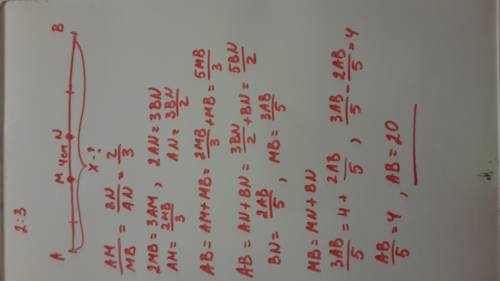 2:3
A M 4см N B
X-?
AM/MB = BN/AN = 2/3
2MB=3AM, 2AN=3BN
AM=2MB/3 AN=3BN/2
AB=AM+MB=2MB/3+MB=5MB/3
AB=AN+BN=3BN/2+BN=5BN/2
BN=2AB/5, MB=3AB/5
MB=MN+BN
3AB/5=4+2AB/5, 3AB/5-2AB/5=4
AB/5=4, AB=20